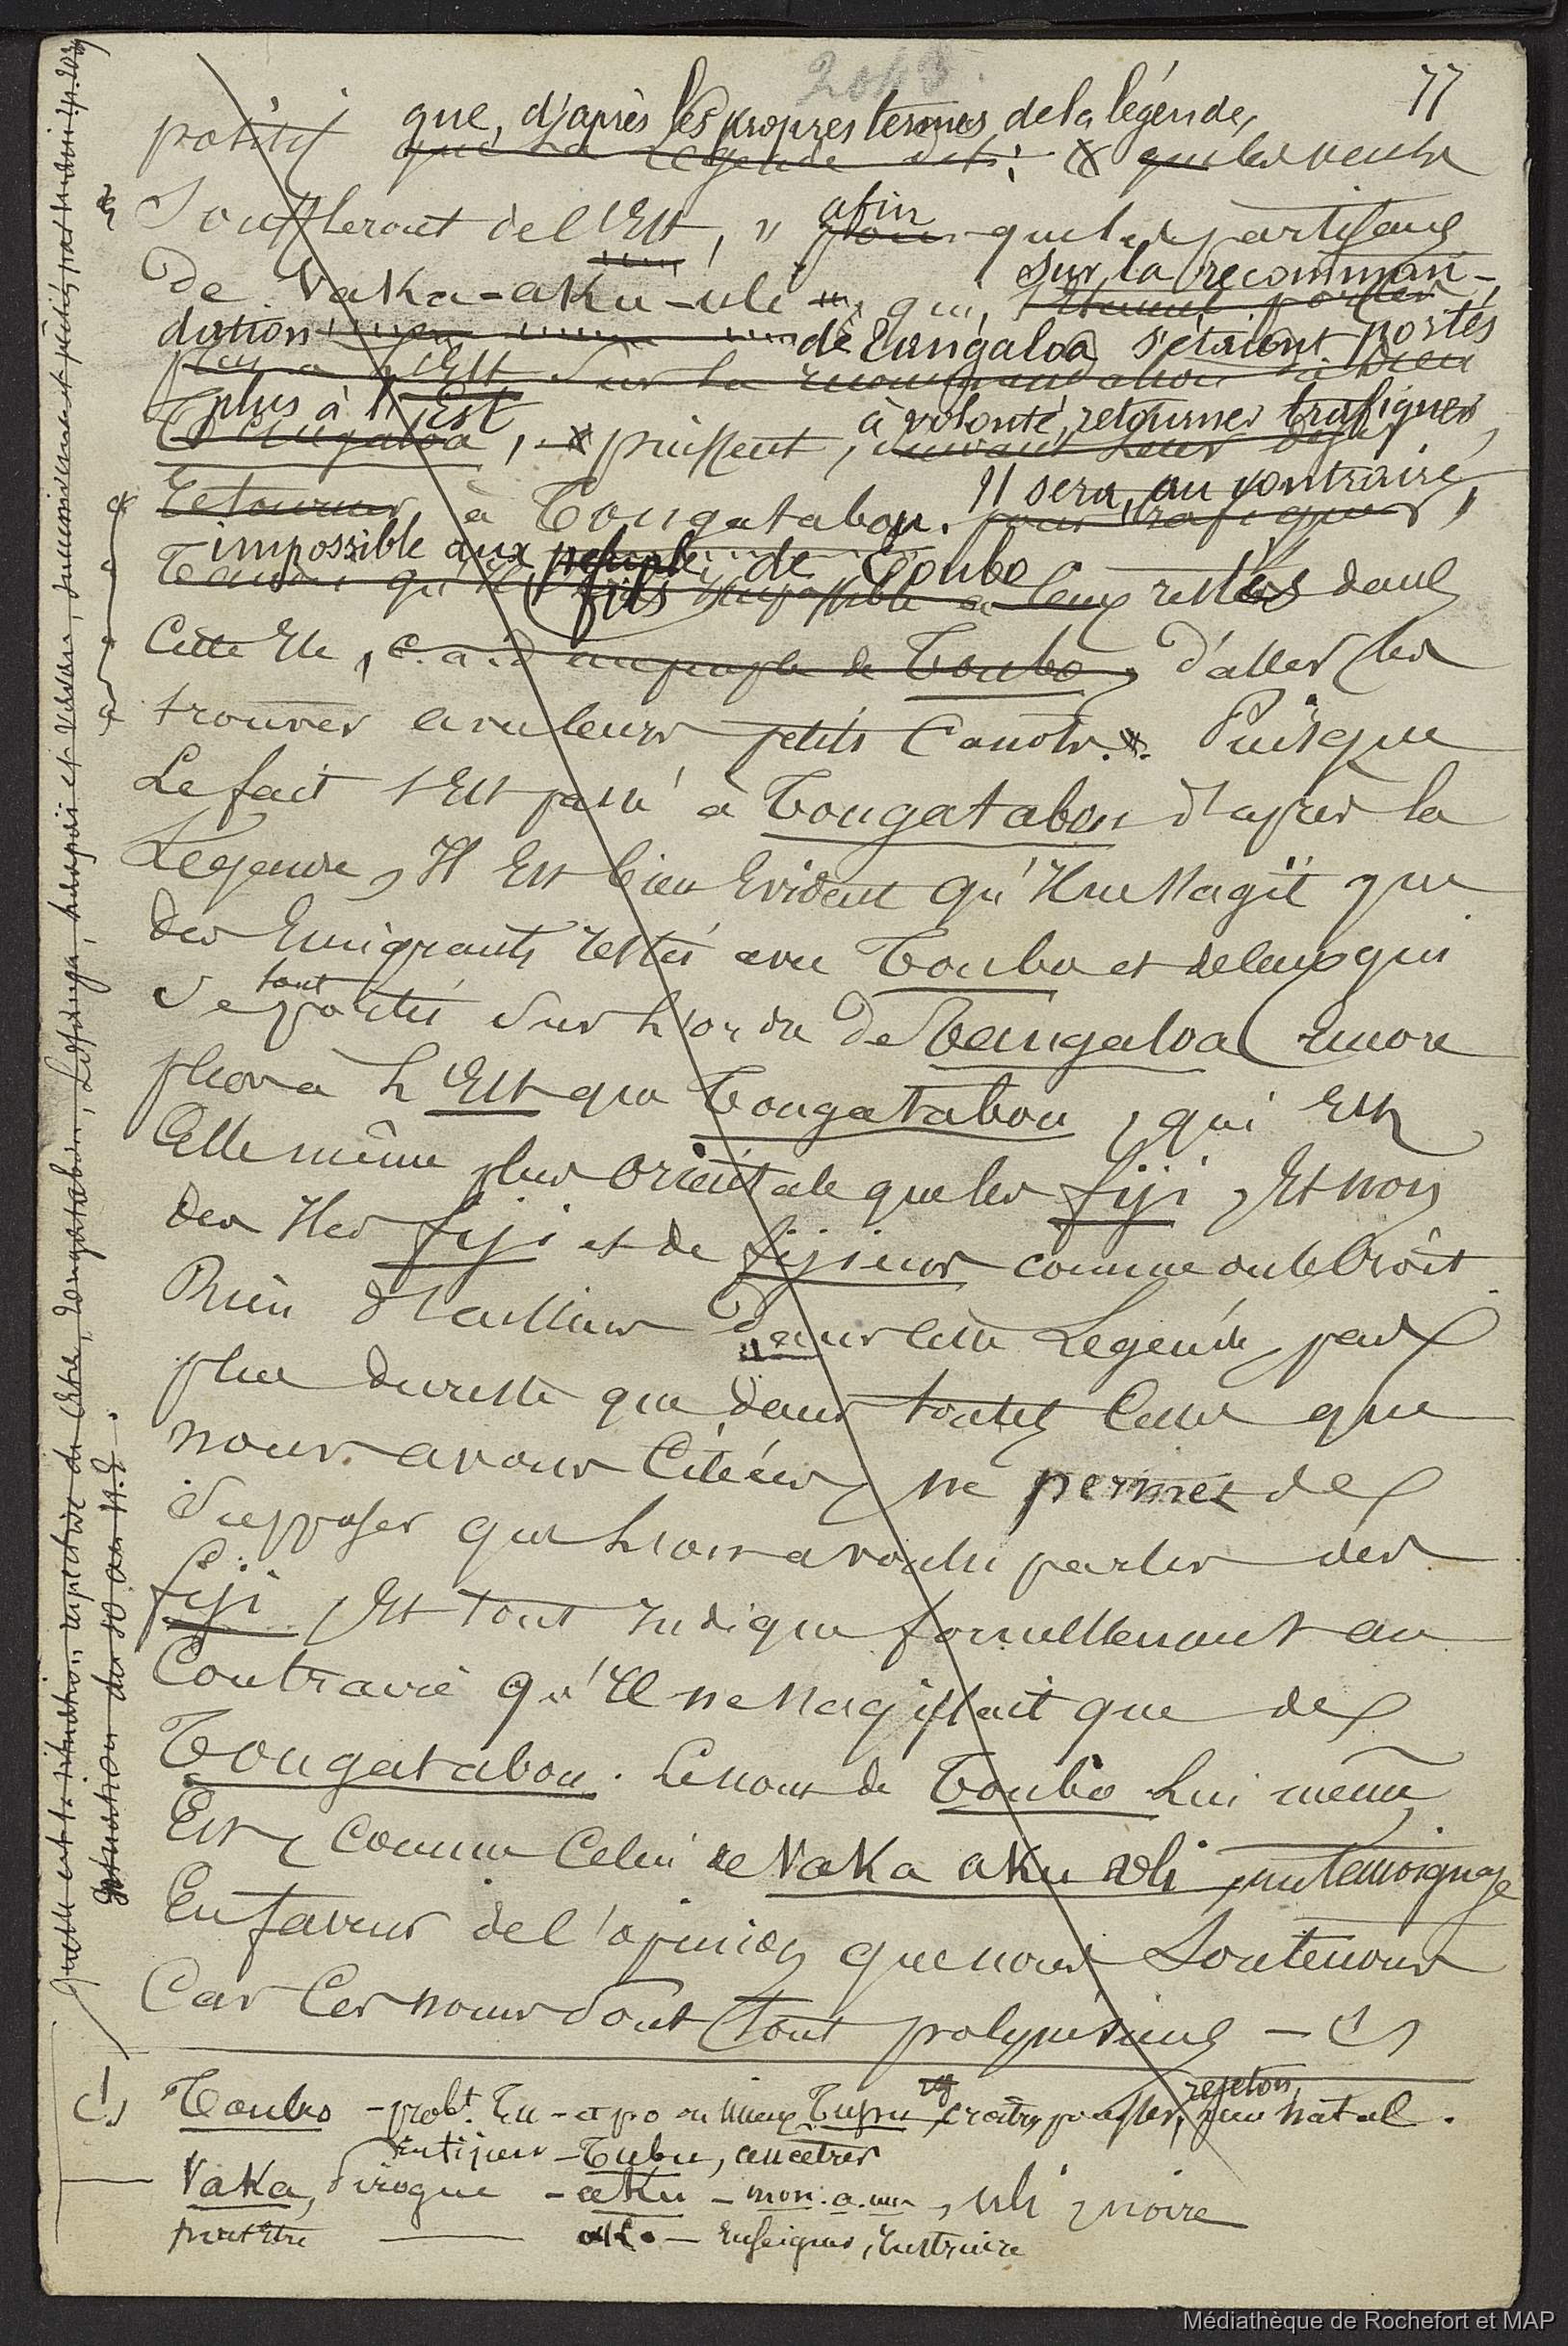 2043
77
positif que, d'après les propres termes de la légende,
que la legende dit : que les vents
souffleront de l'Est, " afin pour que les partisans
de Vaka-aKu-uli qui, sur la recomman-
dation de Tangaloa s'étaient portés
plus à l'Est sur la recommandation
plus à l'Est
Tangaloa, puissent, à volonté, retourner trafiquer,
suivant leur
retourner à Tongatabou. Il sera, au contraire,
pour trafiquer,
impossible aux peuple de Toubo
fils impossible à ceux restés dans
cette Ile, c. a. d au peuple de Toubo, d'aller les
trouver avec leurs petits Canots. Puisque
Le fait s'est passé à Tongatabou d'après la
Legende, Il Est bien Evident qu'Il ne s'agit que
des Emigrants restés avec Toubo et de ceux qui
se sont portés sur l'ordre de Tangaloa Encore
plus à l'Est que Tongatabou, qui Est
Elle même plus orientale que les fiji, Et non
des Iles fiji et de fijiens comme on le Croit.
Rien d'ailleurs dans cette Legende, pas
plus du reste que dans toutes Celles que
nous avons Citées, ne permet de
supposer que l'on a voulu parler des
fiji, Et tout Indique formellement au
Contraire qu'Il ne s'agissait que de
Tongatabou. Le nom de Toubo Lui même,
Est, comme Celui de VaKa aKu uli, un temoignage
En faveur de l'opinion que nous Soutenons
Car Ces noms sont tout polynésiens – (1)
(1) Toubo – probt. Tu – a po ou mieux Tupu, croître, pousser, rejeton, natal.
Tubu, ancetres
VaKa, Pirogue – aKu – mon. a. , uli, noire
peut Etre — aKo – Enseigner, Instruire